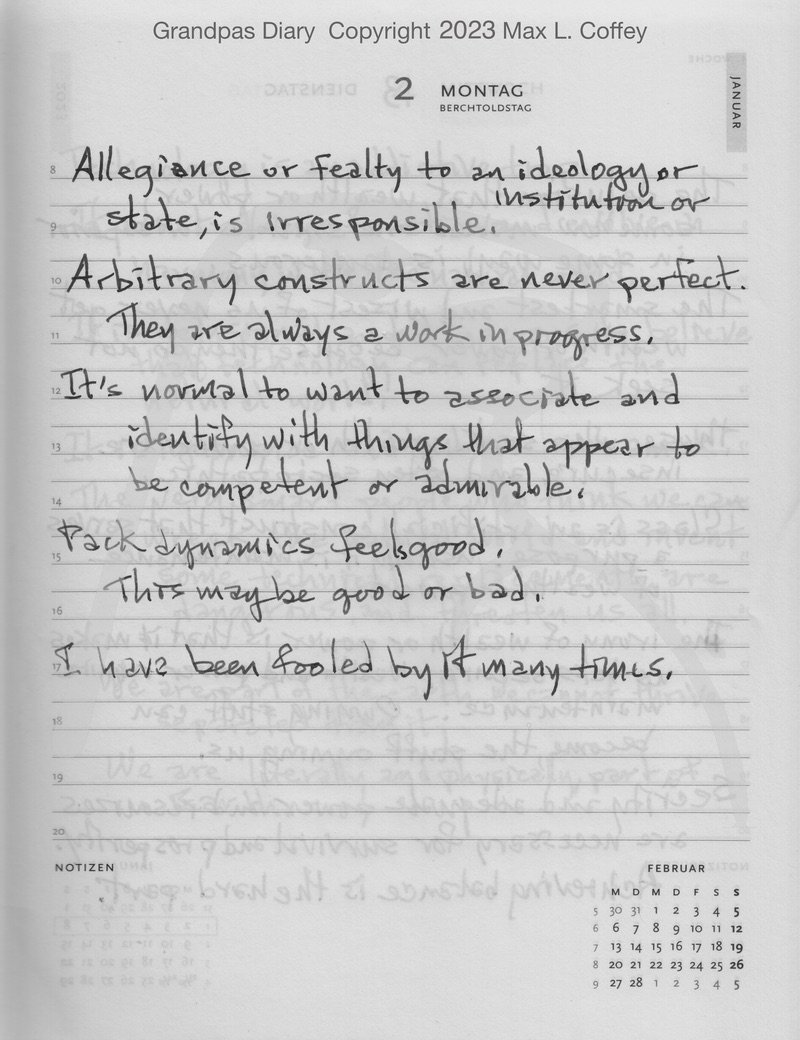 Grandpas Diary Copyright 2023 Max L. Coffey
2 MONTAG
BERCHTOLDSTAG
JANUAR
8 Allegiance or fealty to an ideology or
institution or
9 state, is irresponsible.
10 Arbitrary constructs are never perfect.
11 They are always a work in progress.
12 It's normal to want to associate and
13 identify with things that appear to
14 be competent or admirable.
15 Pack dynamics feels good.
16 This may be good or bad.
17 I have been fooled by it many times.
18
19
20
NOTIZEN
FEBRUAR
M D M D F S S
5 30 31 1 2 3 4 5
6 6 7 8 9 10 11 12
7 13 14 15 16 17 18 19
8 20 21 22 23 24 25 26
9 27 28 1 2 3 4 5